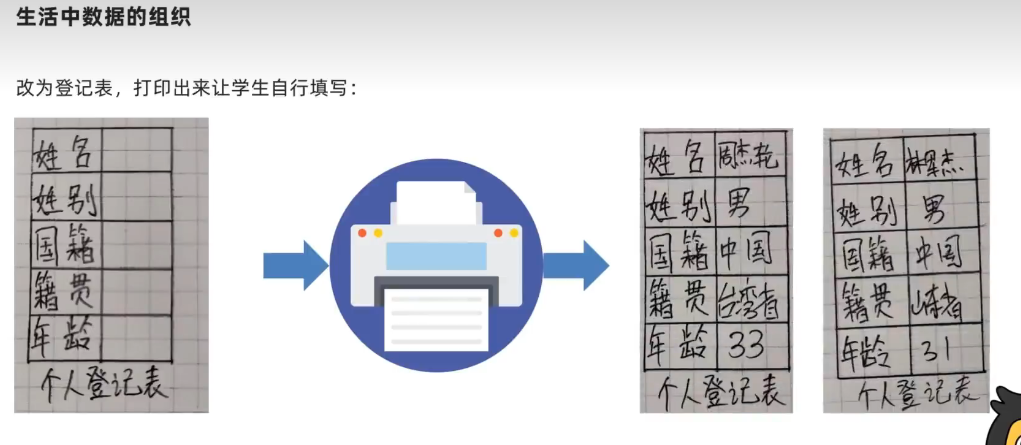 生活中数据的组织
改为登记表，打印出来让学生自行填写：
姓名
姓别
国籍
籍贯
年龄
个人登记表
姓名 周杰轮
姓别 男
国籍 中国
籍贯 台湾省
年龄 33
个人登记表
姓名 林俊杰
姓别 男
国籍 中国
籍贯 山东省
年龄 31
个人登记表